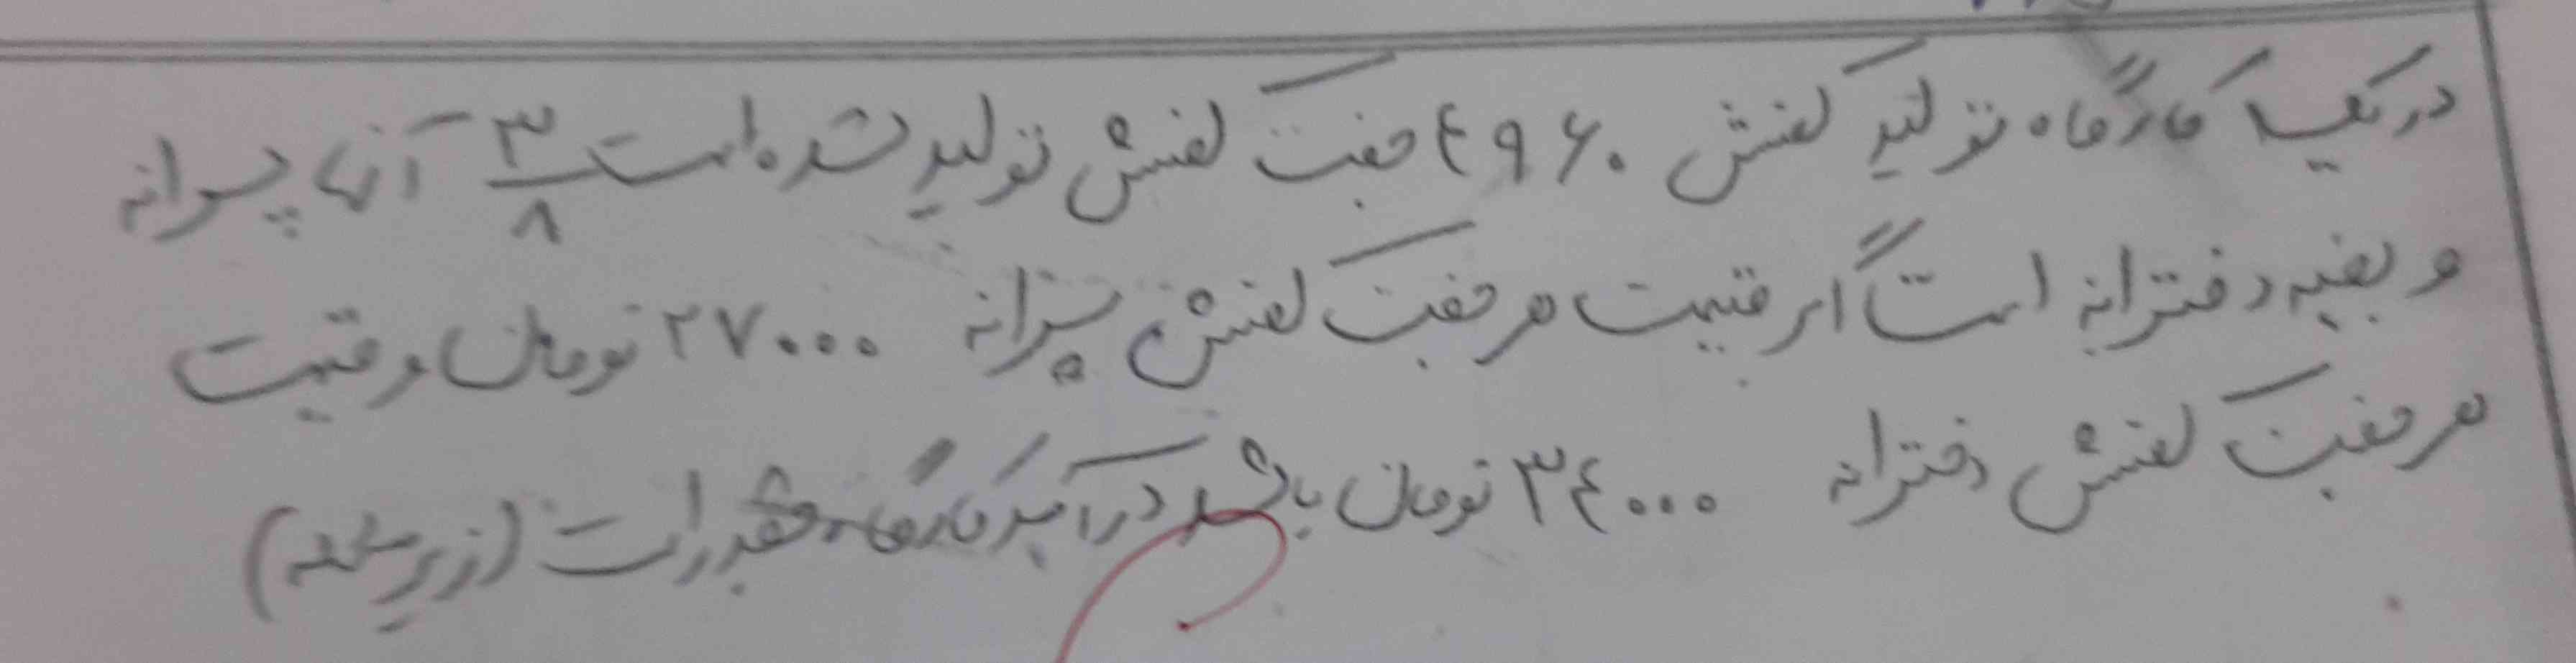 در یک کارگاه تولید کفش ۴۹۶۰ جفت کفش تولید شده است ۳/۸ آنها پسرانه
و بقیه دخترانه است اگر قیمت هر جفت کفش پسرانه ۲۷۰۰۰ تومان و قیمت
هر جفت کفش دخترانه ۳۴۰۰۰ تومان باشد درآمد کارگاه چقدر است (زیبا)